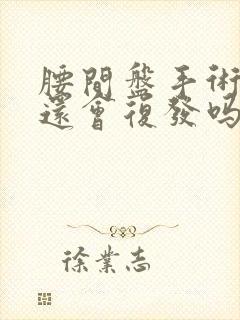 腰間盤手術
還會復發吗
徐業志